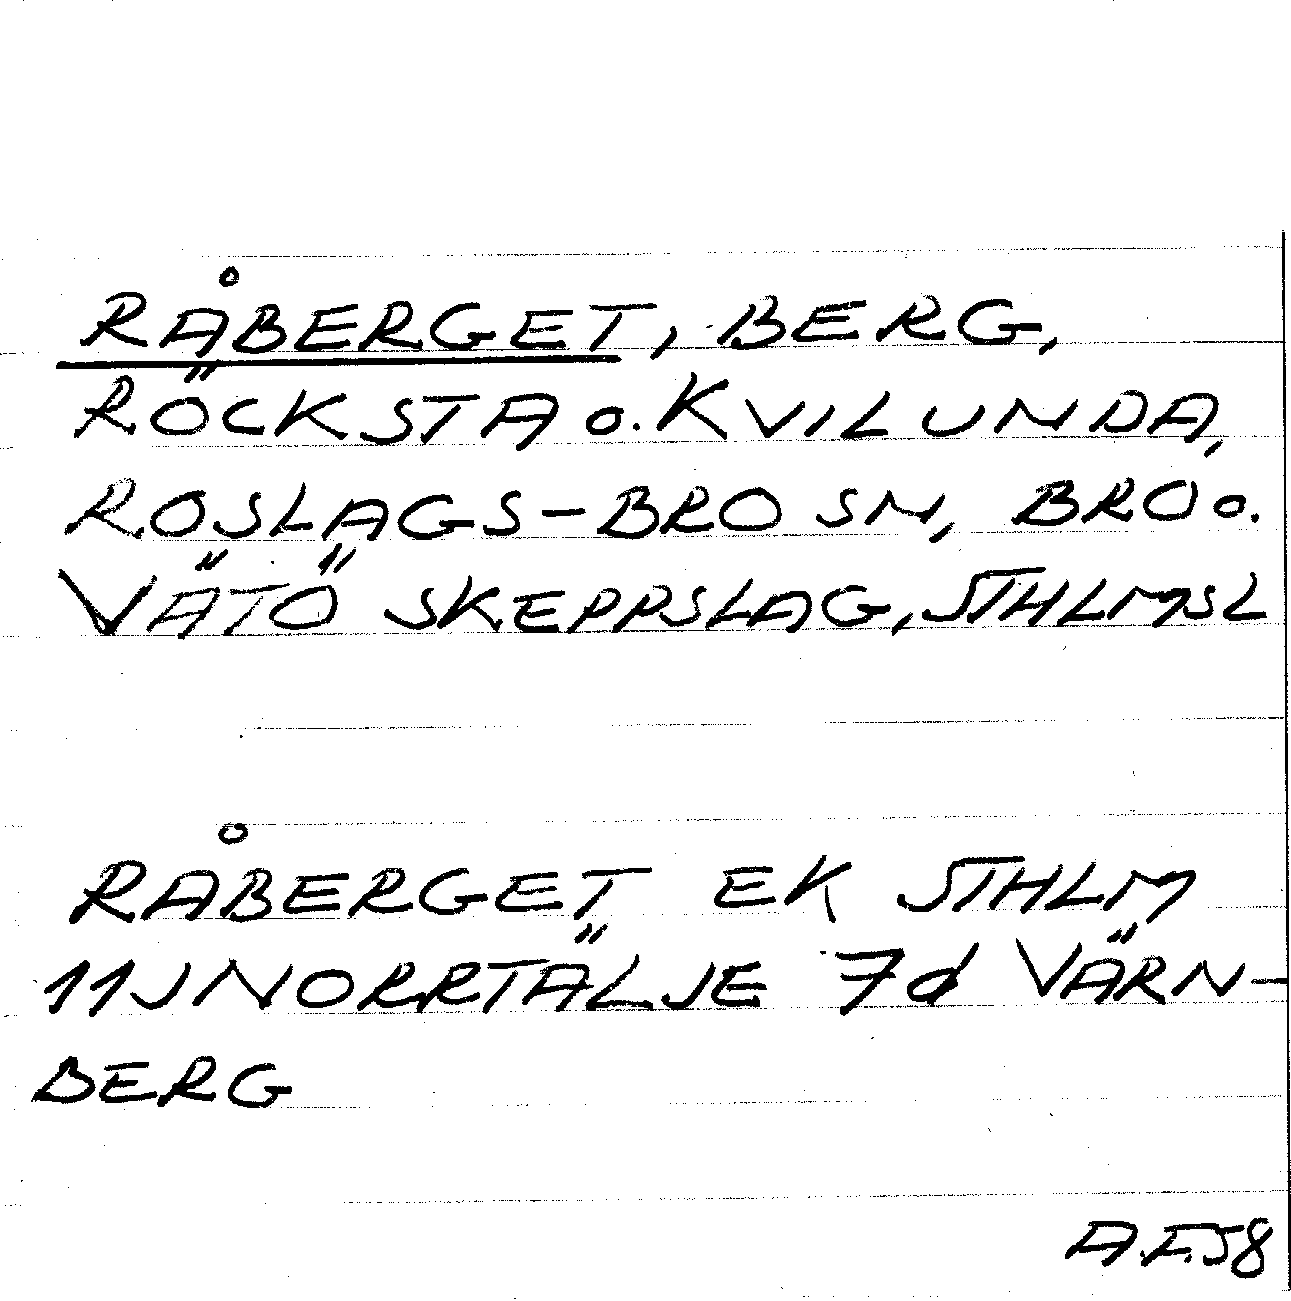 RÅBERGET, BERG,
RÖCKSTA o. KVILUNDA,
ROSLAGS-BRO SN, BRO o.
VÄTÖ SKEPPSLAG, STHLMSL
RÅBERGET EK STHLM
11J NORRTÄLJE 7d VÄRN-
BERG
A.F.58